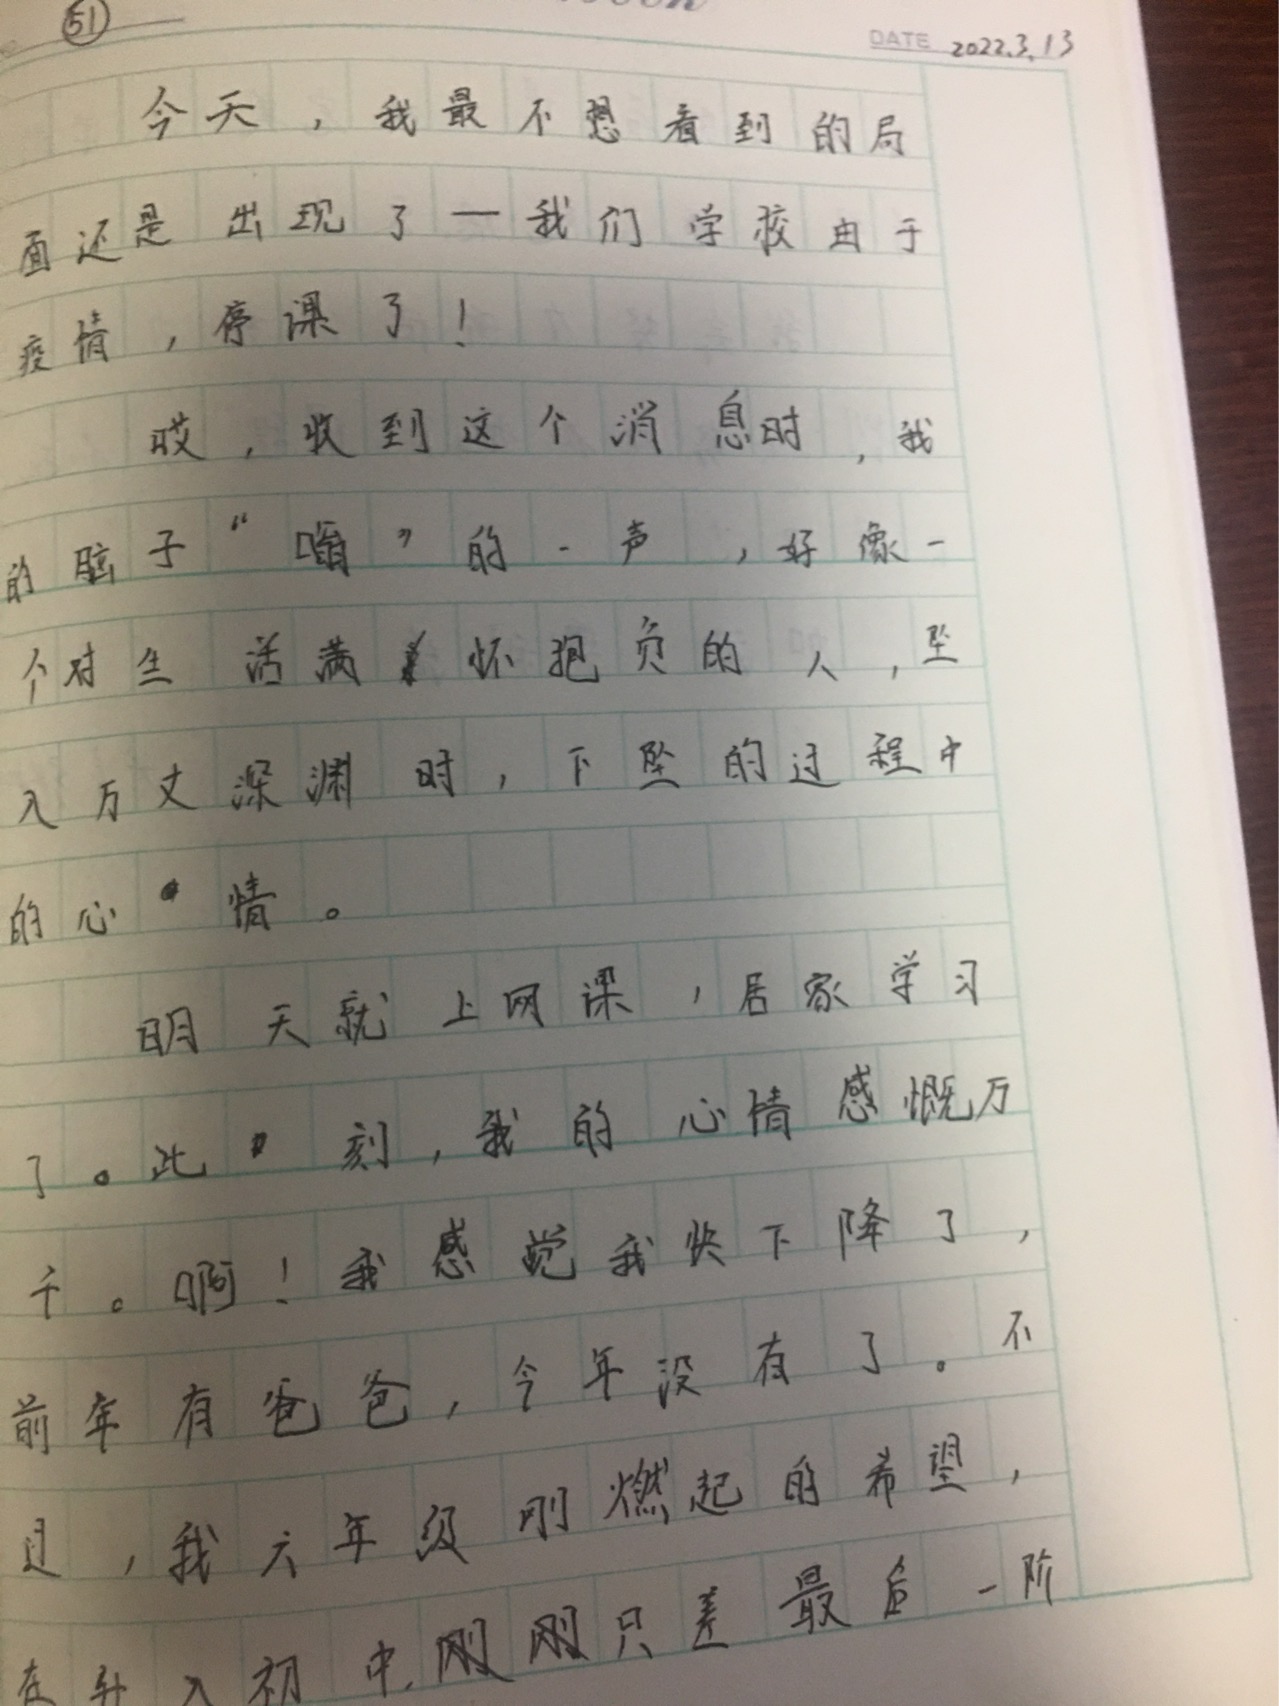 51
DATE 2022.3.13
今天，我最不想看到的局
面还是出现了—我们学校由于
疫情，停课了！
哎，收到这个消息时，我
的脑子“嗡”的一声，好像一
个对生活满怀抱负的人，坠
入万丈深渊时，下坠的过程中
的心情。
明天就上网课，居家学习
了。此刻，我的心情感慨万
千。啊！我感觉我快下降了，
前年有爸爸，今年没有了。不
过，我六年级刚燃起的希望，
在升入初中，刚刚只差最后一阶